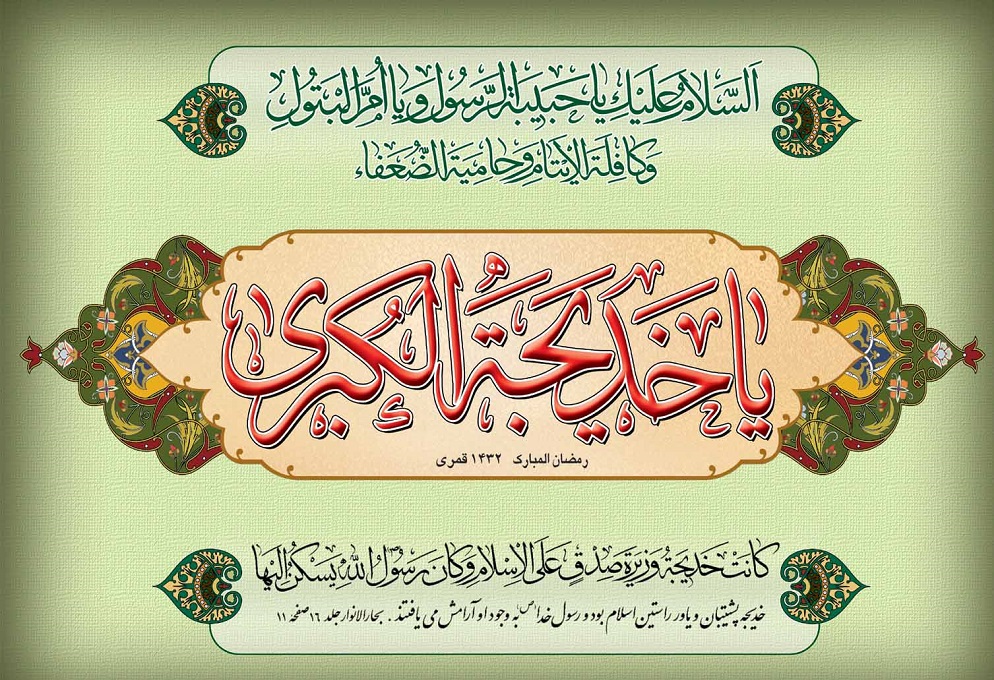 اَلسَّلامُ عَلَيْكِ يا حَبيبَةَ الرَّسُولِ وَ يا أُمَّ الْبَتُولِ
وَ كافِلَةَ الْاَيْتامِ وَ حامِيَةَ الضُّعَفاءِ
يا خَديجَةَ الْكُبْرى
رمضان المبارک ۱۴۳۲ قمری
كانَتْ خَديجَةُ وَزيرَةَ صِدْقٍ عَلَى الْاِسْلامِ وَ كانَ رَسُولُ اللهِ يَسْكُنُ اِلَيْها
خدیجه پشتیبان و یاور راستین اسلام بود و رسول خدا(ص) به وجود او آرامش می یافتند . بحارالانوار جلد ۱۶ صفحه ۱۱